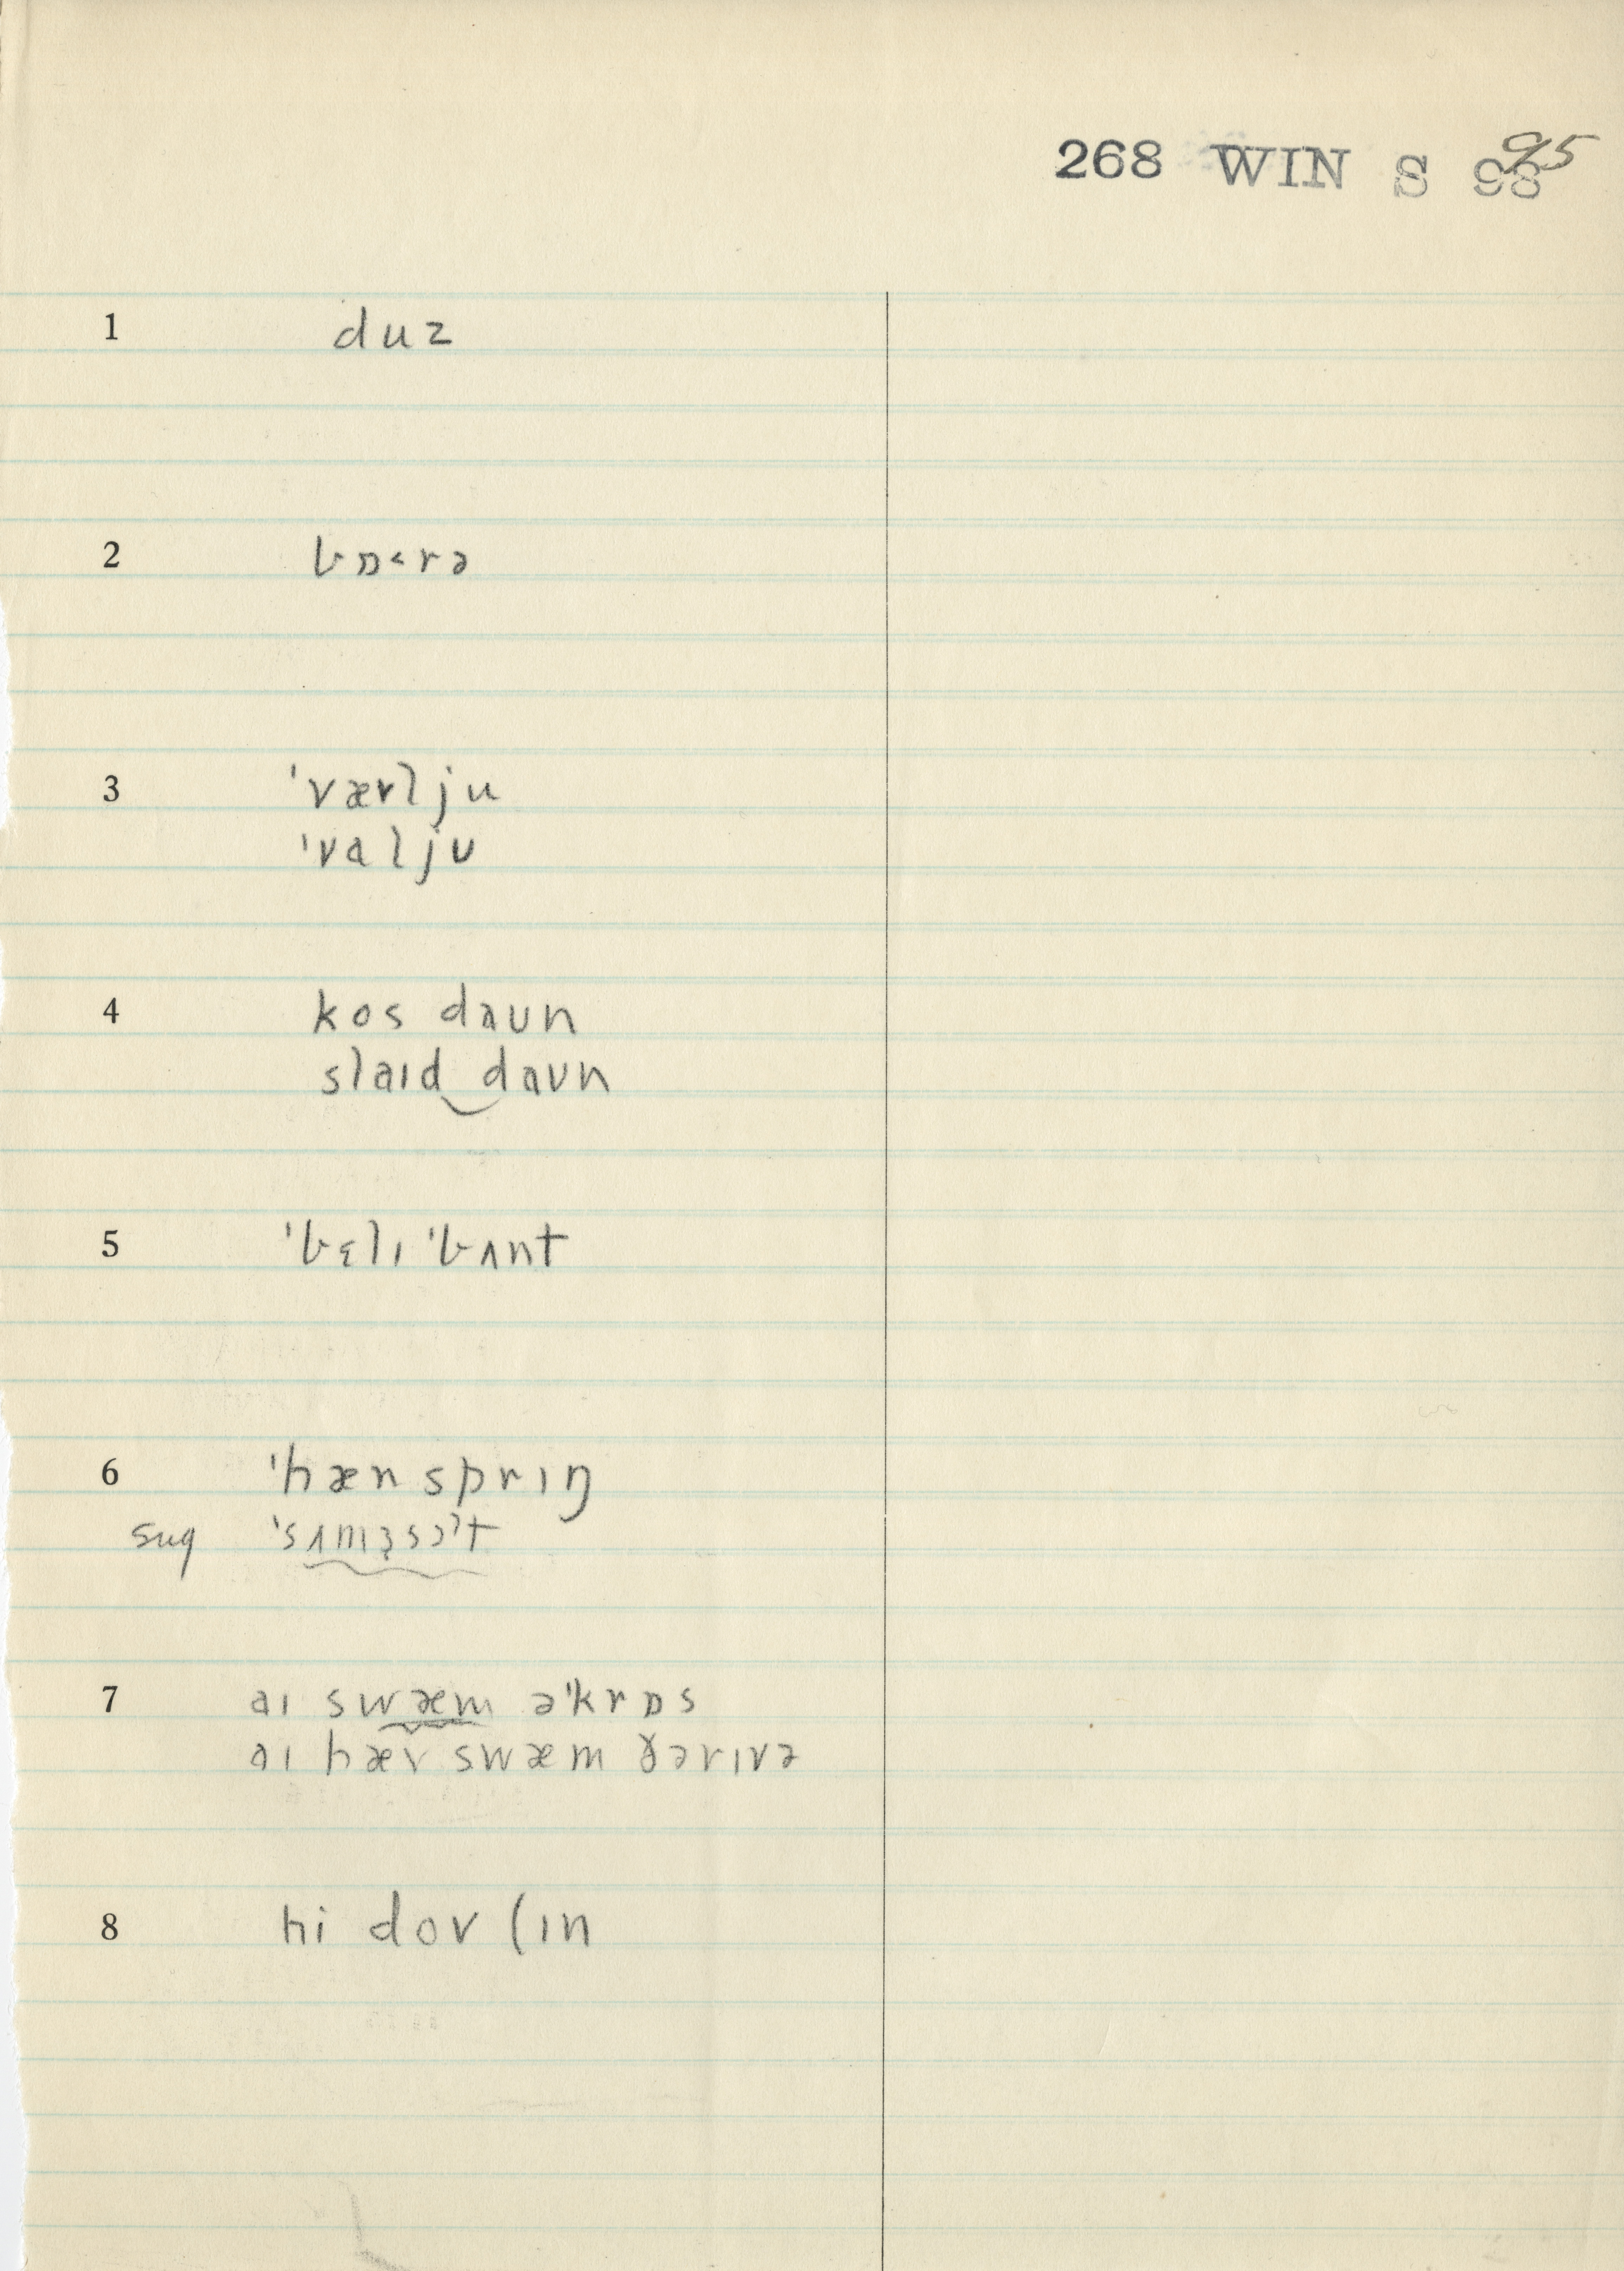 268 WIN S 98 95
1 duz
2 bɒ˂rə
3 ˈværlju
ˈvaljʊ
4 kos daʊn
slaɪd‿daʊn
5 ˈbɛlɪ ˈbʌnt
6 ˈhænsprɪŋ
sug ˈsʌmɜsɔˀt
7 aɪ swæm əˈkrɒs
aɪ hæv swæm ðərɪvə
8 hi dov (ɪn